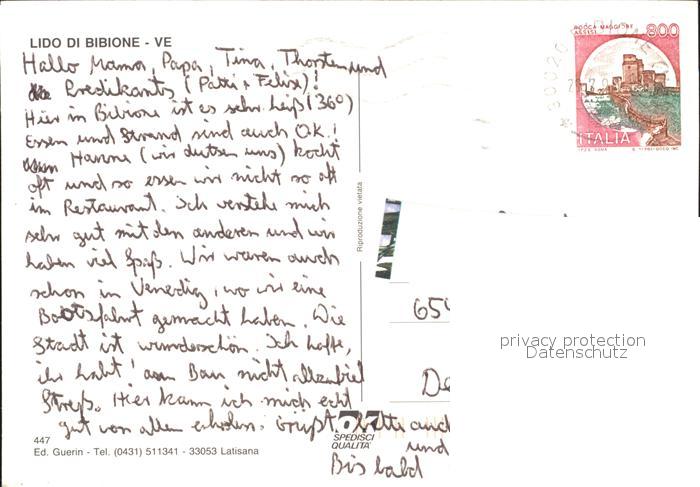 LIDO DI BIBIONE - VE
Hallo Mama, Papa, Tina, Thorsten und
Predikants (Patti + Felix)!
Hier in Bibione ist es sehr heiß (36°)
Essen und Strand sind auch OK!
Hanne (wir dutsen uns) kocht
oft und so essen wir nicht so oft
im Restaurant. Ich verstehe mich
sehr gut mit den anderen und wir
haben viel Spaß. Wir waren auch
schon in Venedig, wo wir eine
Bootsfahrt gemacht haben. Die
Stadt ist wunderschön. Ich hoffe,
ihr habt am Bau nicht allzubiel
Streß. Hier kann ich mich echt
gut von allem erholen. Grüßt bitte auch
und
Bis bald
447
Ed. Guerin - Tel. (0431) 511341 - 33053 Latisana
SPEDISCI
QUALITÀ
Riproduzione vietata
ROCCA MAGGIORE
ASSISI
800
ITALIA
65
De
privacy protection
Datenschutz